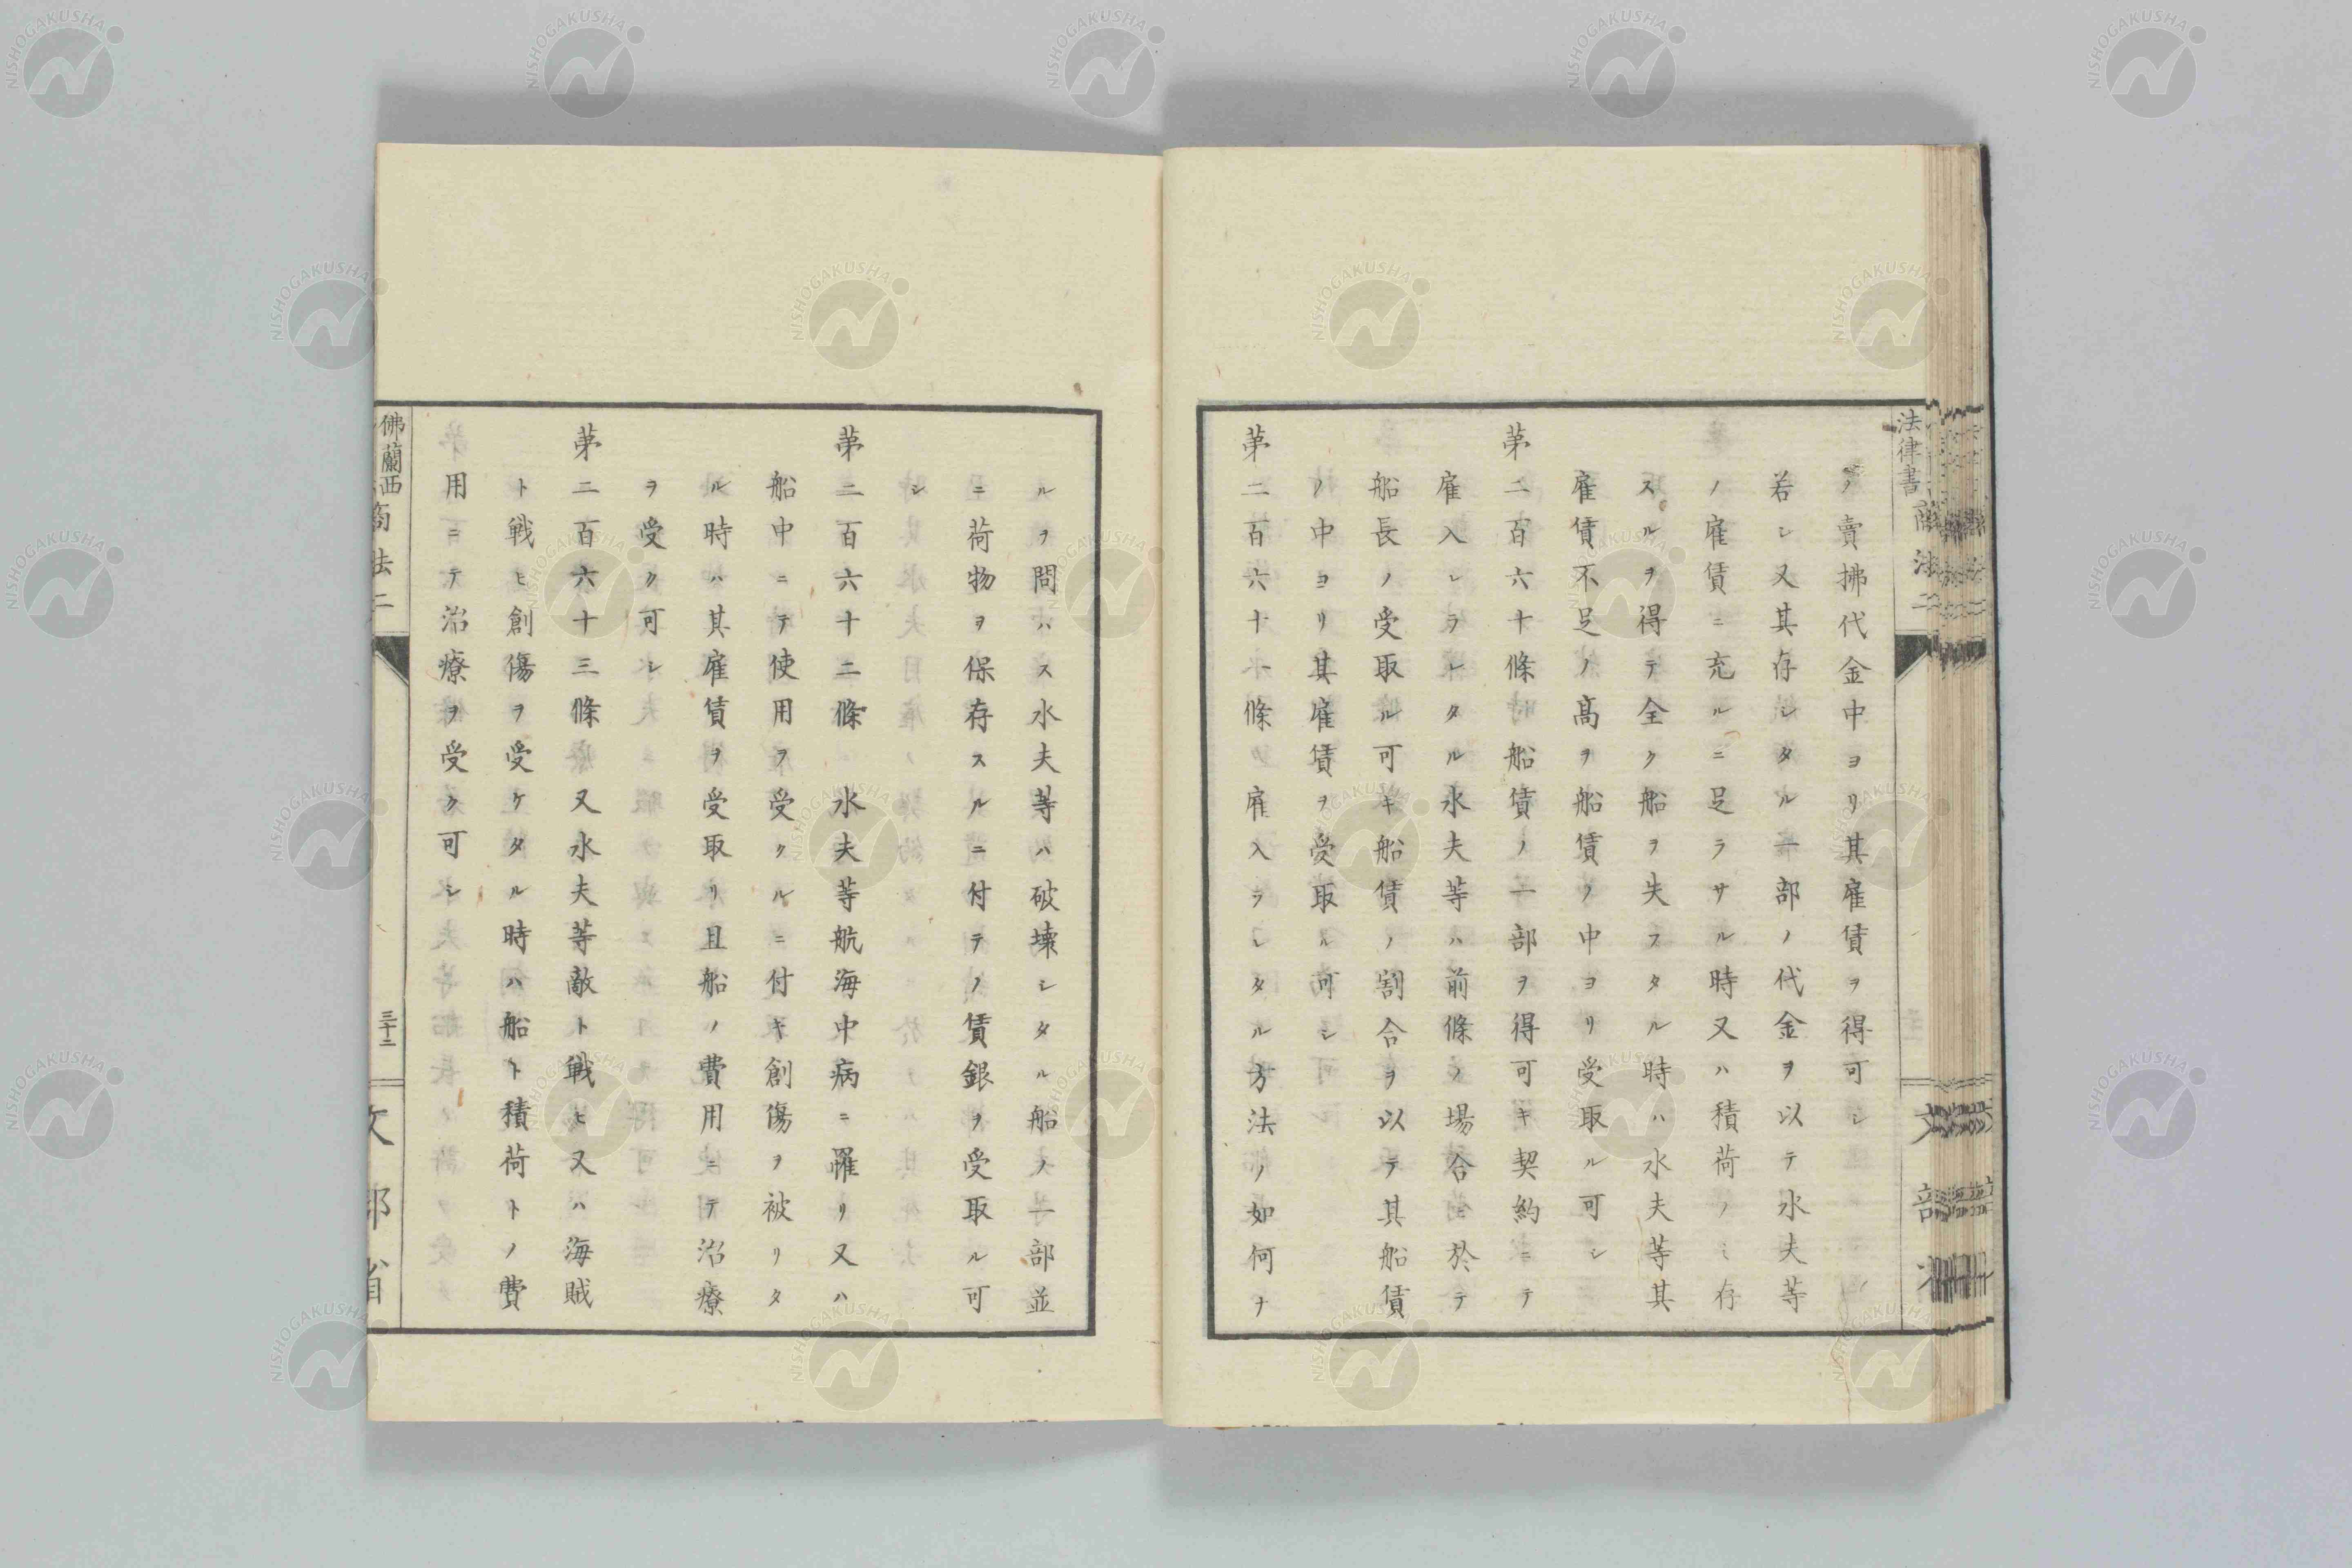 法律書 商法二
ノ賣拂代金中ヨリ其雇賃ヲ得可シ
若シ又其存シタル一部ノ代金ヲ以テ水夫等
ノ雇賃ニ充ルニ足ラサル時又ハ積荷ノミ存
スルヲ得テ全ク船ヲ失フタル時ハ水夫等其
雇賃不足ノ高ヲ船賃ノ中ヨリ受取ル可シ
第二百六十條 船賃ノ一部ヲ得可キ契約ニテ
雇入レラレタル水夫等ハ前條ノ場合ニ於テ
船長ノ受取ル可キ船賃ノ割合ヲ以テ其船賃
ノ中ヨリ其雇賃ヲ受取ル可シ
第二百六十一條 雇入ラレタル方法ノ如何ナ
ルヲ問ハス水夫等ハ破壊シタル船ノ一部並
ニ荷物ヲ保存スルニ付テノ賃銀ヲ受取ル可
シ
第二百六十二條 水夫等航海中病ニ罹リ又ハ
船中ニテ使用ヲ受クルニ付キ創傷ヲ被リタ
ル時ハ其雇賃ヲ受取リ且船ノ費用ニテ治療
ヲ受ク可シ
第二百六十三條 又水夫等敵ト戦ヒ又ハ海賊
ト戦ヒ創傷ヲ受ケタル時ハ船ト積荷トノ費
用ニテ治療ヲ受ク可シ
佛蘭西商法二 三十二 文部省
NISHOGAKUSHA